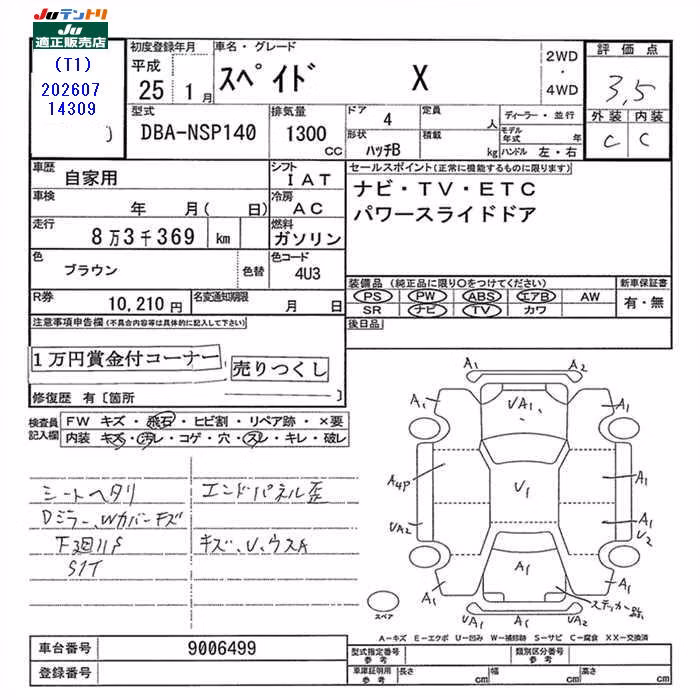 Juテントリ
Ju
適正販売店
(T1)
202607
14309
初度登録年月
平成
25 1月
車名・グレード
スペイド X
2WD
・
4WD
評価点
3.5
外装 内装
C C
型式
DBA-NSP140
排気量
1300
CC
ドア 4
形状 ハッチB
定員
人
積載
kg
ディーラー・並行
モデル年式 年
ハンドル 左・右
車歴 自家用
シフト IAT
車検 年 月( 日)
冷房 AC
走行 8万3千369 km
燃料 ガソリン
色 ブラウン
色替
色コード 4U3
R券 10,210円
名変通知期限 月 日
セールスポイント(正常に機能するものに限ります)
ナビ・TV・ETC
パワースライドドア
装備品(純正品に限り○をつけてください)
PS PW ABS エアB AW
SR ナビ TV カワ
新車保証書
有・無
後日品
注意事項申告欄(不具合内容等は具体的に記入して下さい)
1万円賞金付コーナー
売りつくし
修復歴 有〔箇所 〕
検査員
記入欄
FW キズ・飛石・ヒビ割・リペア跡・×要
内装 キズ・汚レ・コゲ・穴・スレ・キレ・破レ
シートヘタリ
エンドパネル歪
Dミラー、Wカバーキズ
下廻りS
キズ、U、ウスA
SIT
A1 A2
A1 UA1 A1
A4P U1 A1
UA2 A1 U2
A1 A1 A1
ステッカー跡
UA1 A1 UA2
スペア
A-キズ E-エクボ U-凹み W-補修跡 S-サビ C-腐食 XX-交換済
車台番号 9006499
登録番号
型式指定番号
参考
類別区分番号
参考
車庫証明用
参考
長さ cm
幅 cm
高さ cm